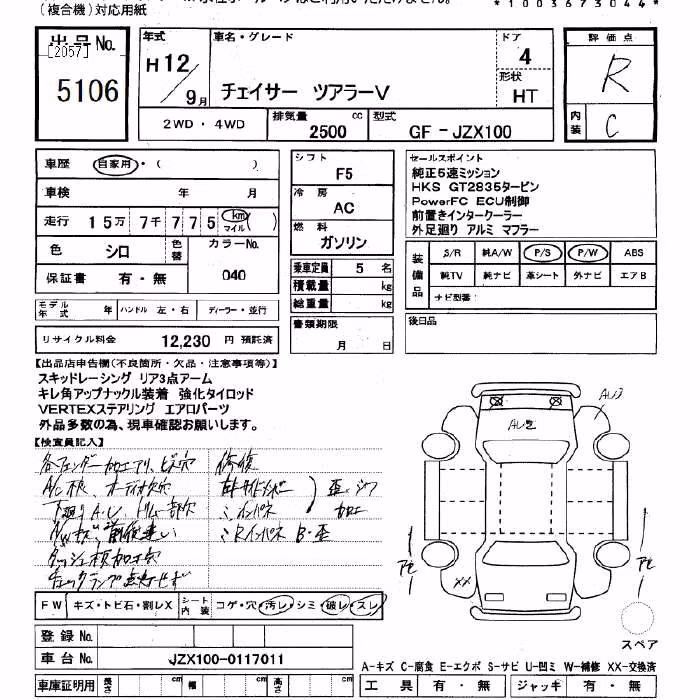 (複合機)対応用紙
*1003673044*
出品No.
[2057]
5106
年式
H12/9月
車名・グレード
チェイサー ツアラーV
ドア
4
形状
HT
評価点
R
内装
C
2WD・4WD
排気量
2500 cc
型式
GF-JZX100
車歴 自家用・( )
車検 年 月
走行 15万7千775 km マイル( )
色 シロ
色替
カラーNo.
040
保証書 有・無
シフト
F5
冷房
AC
燃料
ガソリン
乗車定員 5名
積載量 kg
総重量 kg
セールスポイント
純正5速ミッション
HKS GT2835タービン
PowerFC ECU制御
前置きインタークーラー
外足廻り アルミ マフラー
装備品
S/R 純A/W P/S P/W ABS
純TV 純ナビ 革シート 外ナビ エアB
ナビ型番:
モデル年式 年 ハンドル 左・右 ディーラー・並行
リサイクル料金 12,230 円 預託済
書類期限
月 日
後日品
【出品店申告欄(不良箇所・欠品・注意事項等)】
スキッドレーシング リア3点アーム
キレ角アップナックル装着 強化タイロッド
VERTEXステアリング エアロパーツ
外品多数の為、現車確認お願いします。
【検査員記入】
各フェンダー加工アリ、ビス穴
修復
ダッシュ板加工穴
チェックランプ点灯せず
XX
FW キズ・トビ石・割レX
シート内装 コゲ・穴・汚レ・シミ・破レ・スレ
スペア
登録No.
車台No. JZX100-0117011
A-キズ C-腐食 E-エクボ S-サビ U-凹ミ W-補修 XX-交換済
車庫証明用 長さ cm 幅 cm 高さ cm
工具 有・無 ジャッキ 有・無